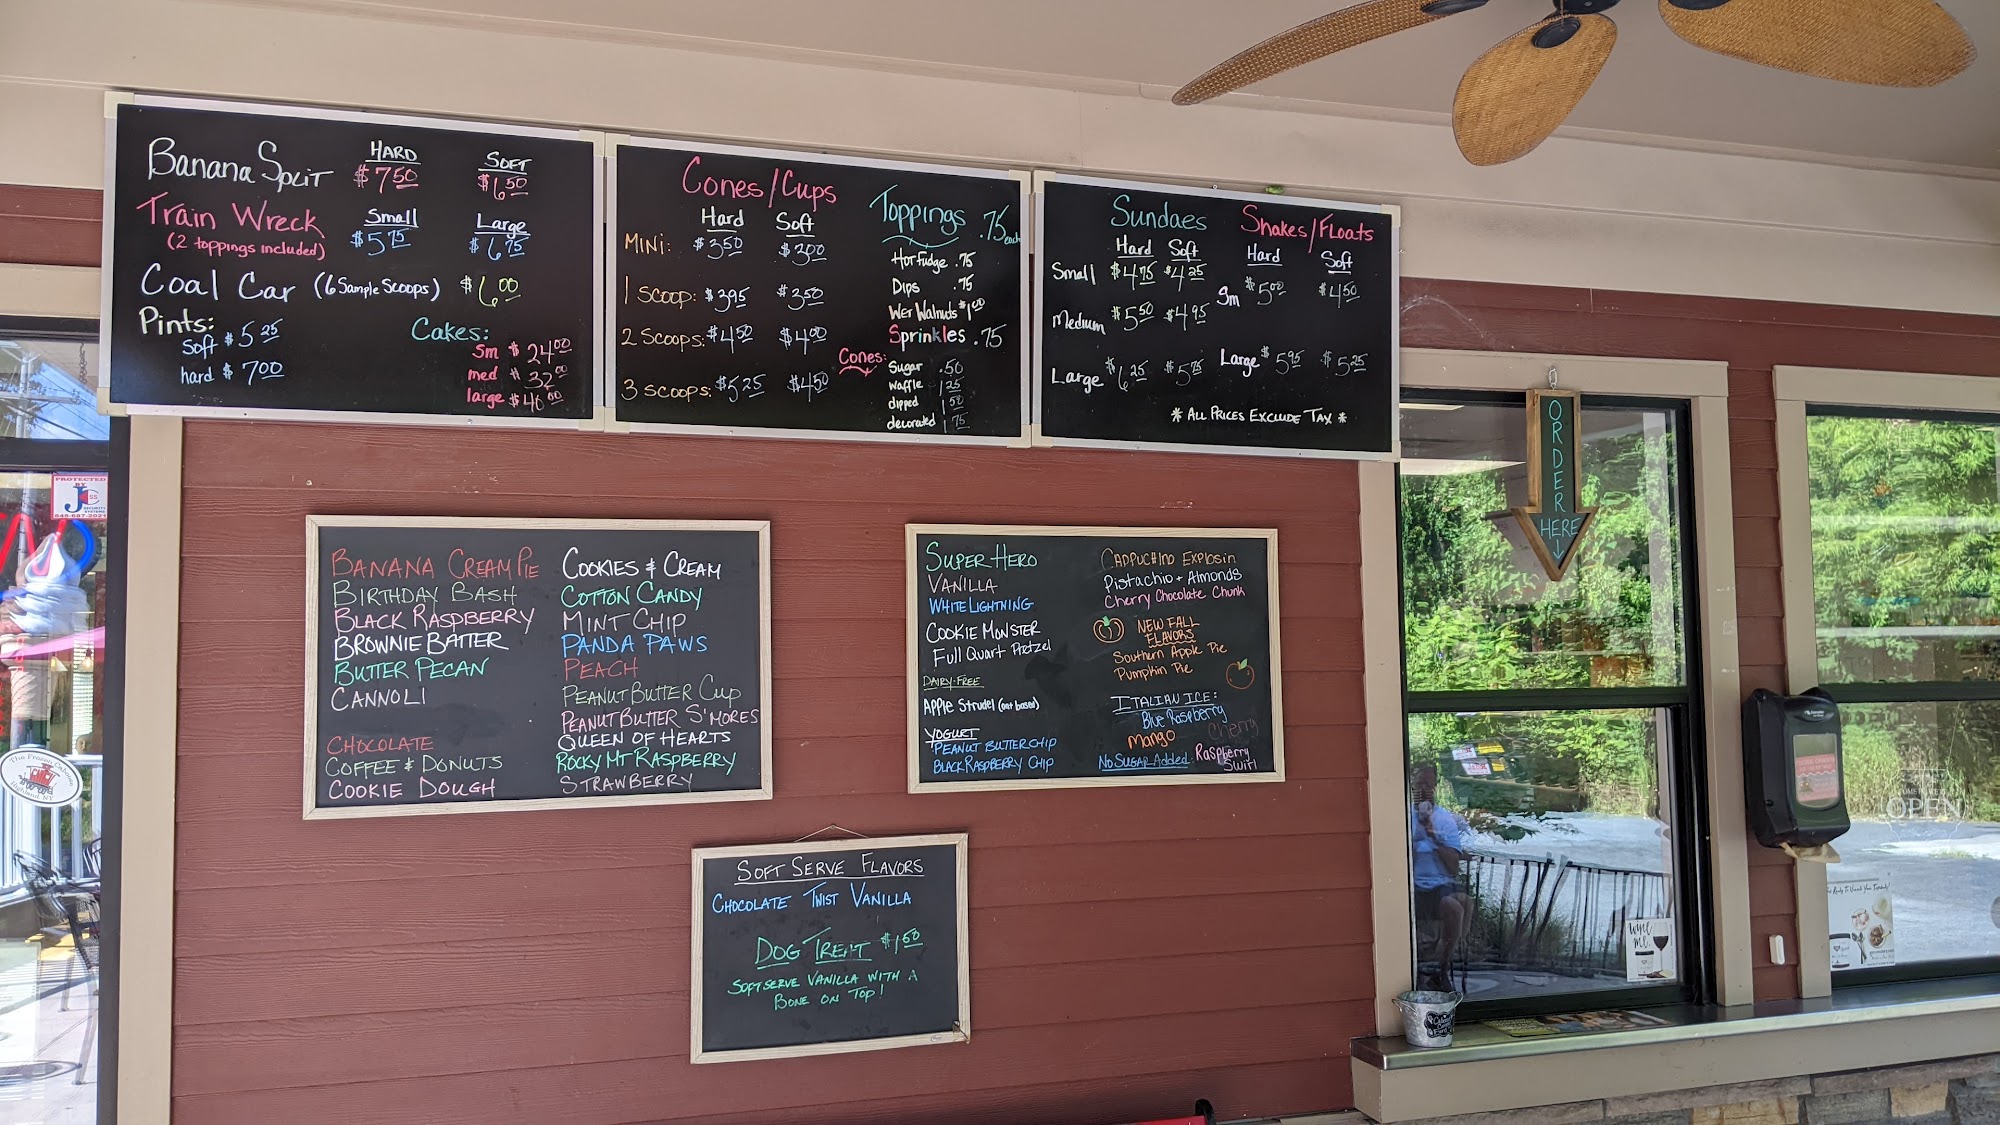 Banana Split
HARD
$7.50
SOFT
$6.50
Train Wreck
(2 toppings included)
Small
$5.75
Large
$6.75
Coal Car (6 Sample Scoops) $6.00
Pints:
Soft $5.25
hard $7.00
Cakes:
Sm $24.00
med $32.00
large $40.00
Cones/Cups
Hard Soft
Mini: $3.50 $3.00
1 Scoop: $3.95 $3.50
2 Scoops: $4.50 $4.00
3 Scoops: $5.25 $4.50
Toppings .75 each
Hot fudge .75
Dips .75
Wet Walnuts $1.00
Sprinkles .75
Cones:
Sugar .50
Waffle 1.25
dipped 1.50
decorated 1.75
Sundaes
Hard Soft
Small $4.75 $4.25
Medium $5.50 $4.95
Large $6.25 $5.75
Shakes/Floats
Hard Soft
Sm $5.00 $4.50
Large $5.95 $5.25
* All Prices Exclude Tax *
ORDER
HERE
Banana Cream Pie
Birthday Bash
Black Raspberry
Brownie Batter
Butter Pecan
Cannoli
Chocolate
Coffee & Donuts
Cookie Dough
Cookies & Cream
Cotton Candy
Mint Chip
Panda Paws
Peach
Peanut Butter Cup
Peanut Butter S'mores
Queen of Hearts
Rocky Mt Raspberry
Strawberry
Super Hero
Vanilla
White Lightning
Cookie Monster
Full Quart Pretzel
Dairy-Free
Apple Strudel (oat based)
Yogurt
Peanut Butter Chip
Black Raspberry Chip
Cappuchino Explosin
Pistachio + Almonds
Cherry Chocolate Chunk
New Fall
Flavors
Southern Apple Pie
Pumpkin Pie
Italian Ice:
Blue Raspberry
Mango Cherry
No Sugar Added: Raspberry
Swirl
Soft Serve Flavors
Chocolate Twist Vanilla
Dog Treat $1.50
Soft serve Vanilla with a
Bone on Top!
PROTECTED
BY
JC
SECURITY
SYSTEMS
845-687-2021
The Frozen Caboose
Highland, NY
OPEN
wine
me.